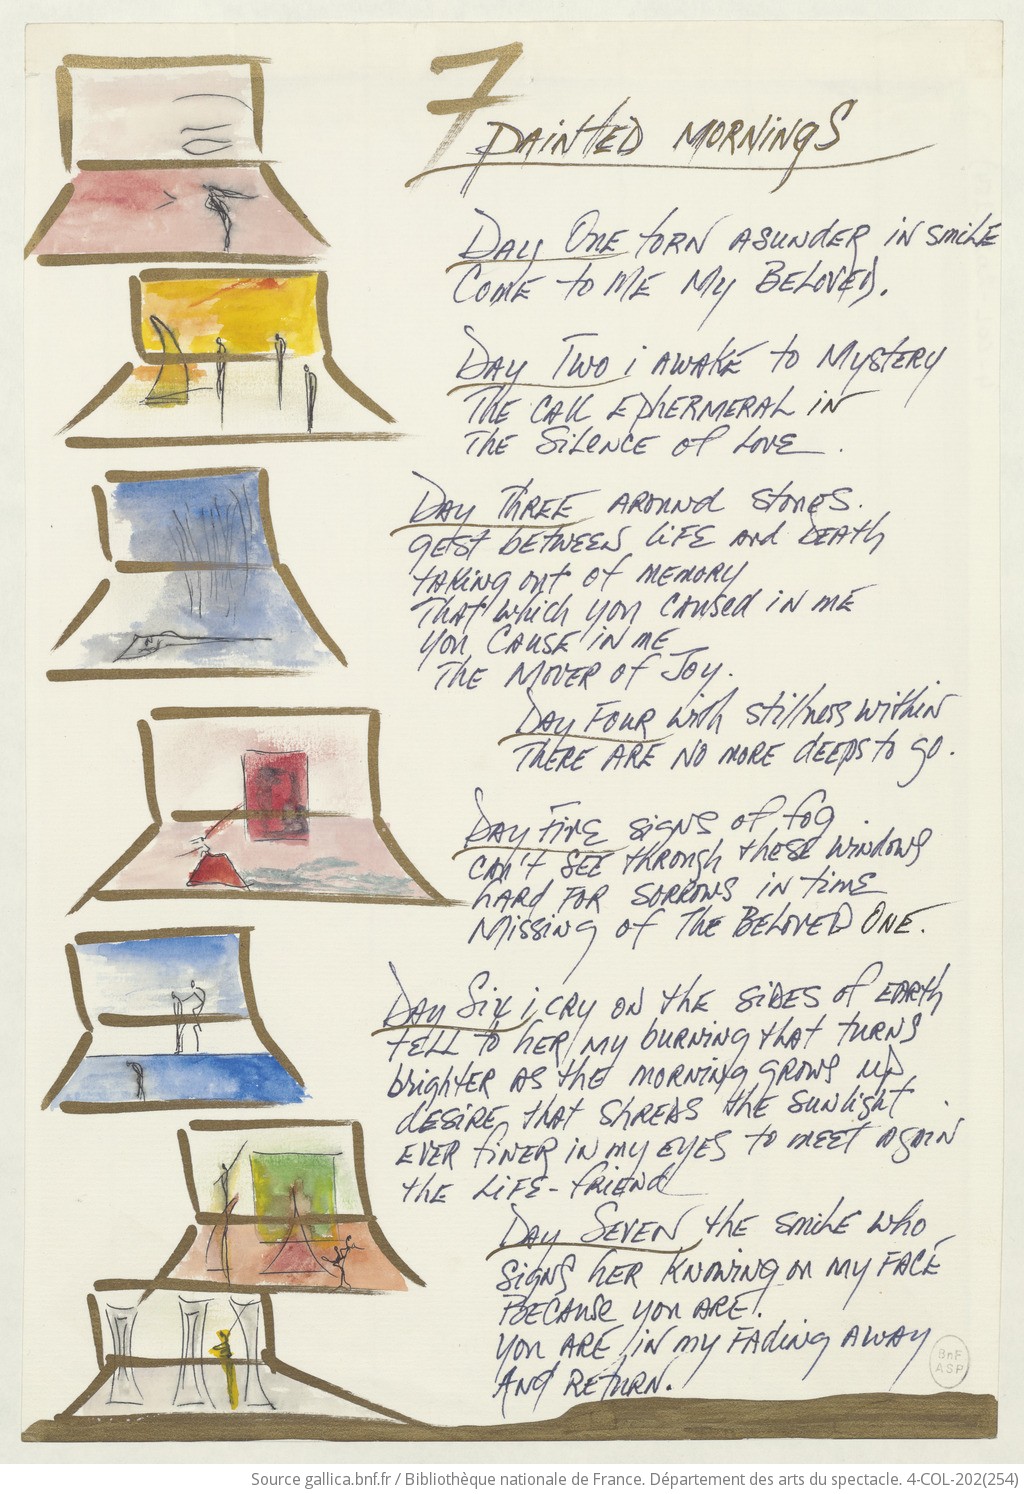 7 PAINTED MORNINGS
DAY ONE TORN ASUNDER IN SMILE
COME to ME MY BELOVED.
DAY TWO i AWAKE to MYSTERY
THE CALL EPHERMERAL IN
THE SILENCE of LOVE.
DAY THREE AROUND STONES.
GEIST BETWEEN LIFE and DEATH
TAKING out of MEMORY
THAT which you CAUSED IN ME
YOU CAUSE IN ME
THE MOVER of JOY.
DAY FOUR with stillness within
THERE ARE NO MORE deeps to go.
DAY FIVE SIGNS of fog
CAN'T SEE through these windows
HARD FOR SORROWS IN TIME
MISSING of THE BELOVED ONE.
DAY SIX i CRY ON the SIDES of EARTH
TELL to her my burning that turns
brighter AS the MORNING GROWS UP
DESIRE that SHREDS the SUNLIGHT.
EVER finer IN my EYES to MEET AGAIN
the LIFE-friend
DAY SEVEN the SMILE who
SIGNS her KNOWING on my FACE
BECAUSE you ARE.
YOU ARE IN my FADING AWAY
AND RETURN.
BnF
ASP
Source gallica.bnf.fr / Bibliothèque nationale de France. Département des arts du spectacle. 4-COL-202(254)